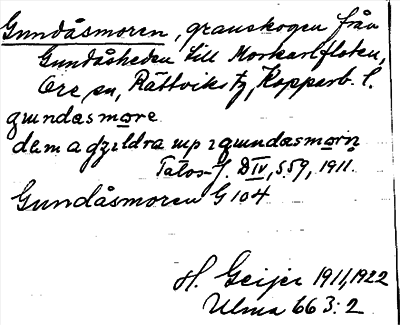 Gundåsmoren, granskogen från
Gundåsheden till Morkarlfloten,
Ore sn, Rättviks tg, Kopparb. l.
gundasmore
dem a gzildra up i gundasmorn
Talos-f. D IV, s. 59, 1911.
Gundåsmoren G 104
H. Geijer 1911, 1922
Ulma 66 3:2